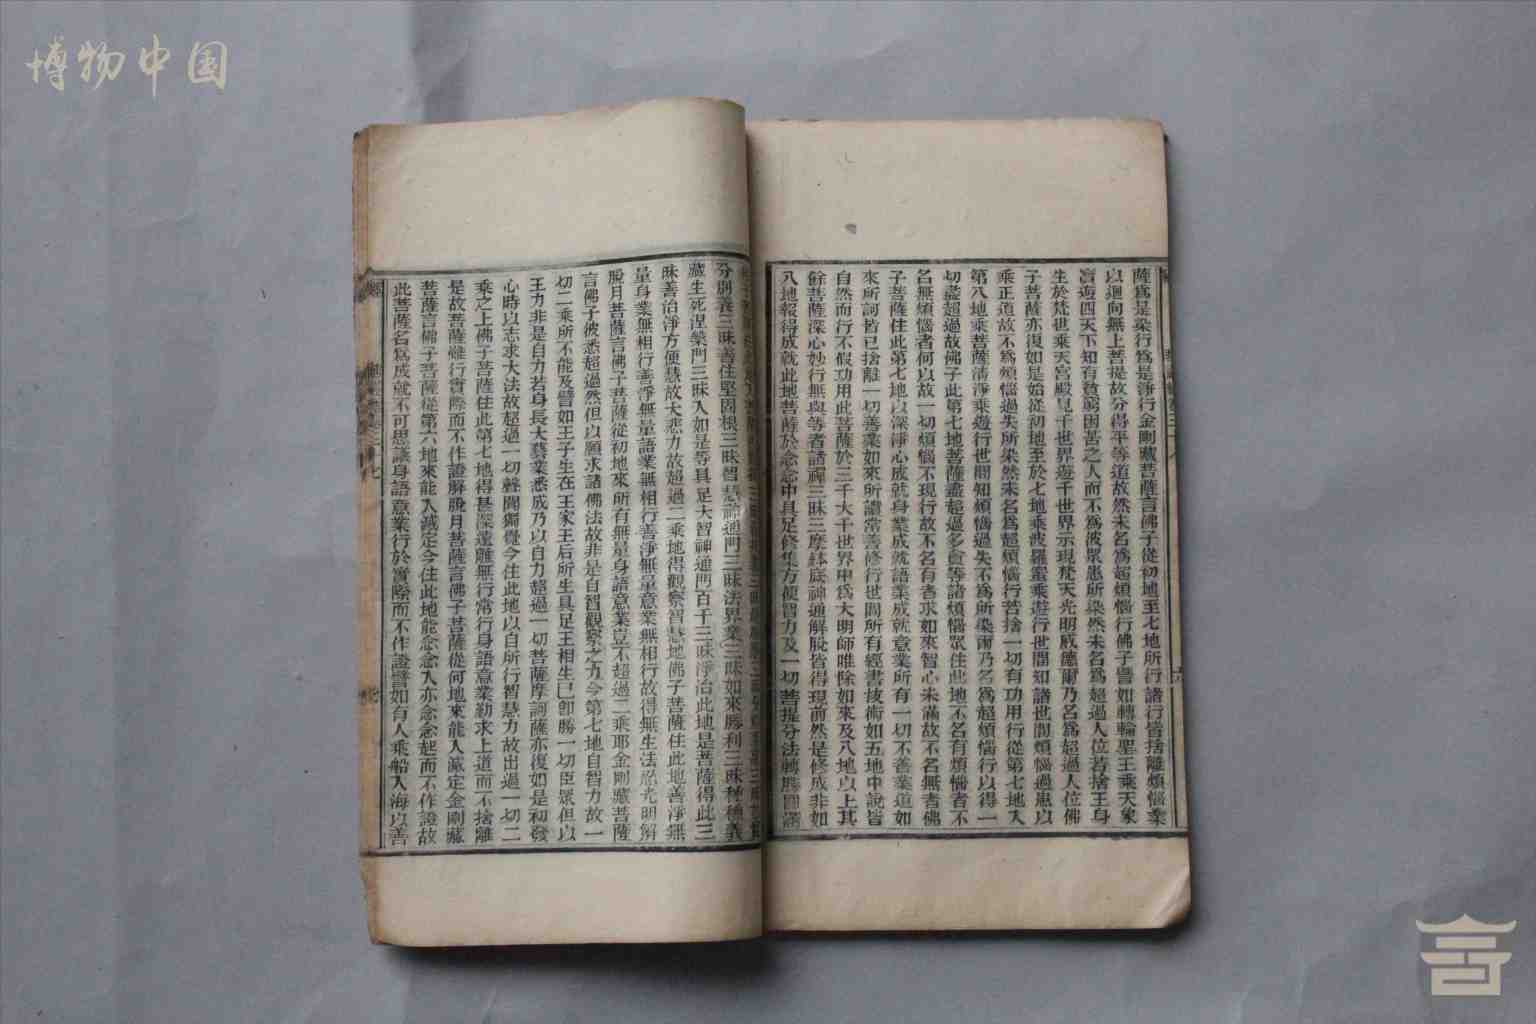 薩爲是染行爲是淨行金剛藏菩薩言佛子從初地至七地所行諸行皆捨離煩惱業
以迴向無上菩提故分得平等道故然未名爲超煩惱行佛子譬如轉輪聖王乘天象
寶遊四天下知有貧窮困苦之人而不爲彼眾患所染然未名爲超過人位若捨王身
生於梵世乘天宮殿見千世界遊千世界示現梵天光明威德爾乃名爲超過人位佛
子菩薩亦復如是始從初地至於七地乘波羅蜜乘遊行世間知諸世間煩惱過患以
乘正道故不爲煩惱過失所染然未名爲超煩惱行若捨一切有功用行從第七地入
第八地乘菩薩清淨乘遊行世間知煩惱過失不爲所染爾乃名爲超煩惱行以得一
切盡超過故佛子此第七地菩薩盡超過多貪等諸煩惱眾住此地不名有煩惱者不
名無煩惱者何以故一切煩惱不現行故不名有者求如來智心未滿故不名無者佛
子菩薩住此第七地以深淨心成就身業成就語業成就意業所有一切不善業道如
來所訶皆已捨離一切善業如來所讚常善修行世間所有經書技術如五地中說皆
自然而行不假功用此菩薩於三千大千世界中爲大明師唯除如來及八地以上其
餘菩薩深心妙行無與等者諸禪三昧三摩鉢底神通解脫皆得現前然是修成非如
八地報得成就此地菩薩於念念中具足修集方便智力及一切菩提分法轉勝圓滿
分別義三昧善住堅固根三昧智慧神通門三昧法界業三昧如來勝利三昧種種義
藏生死涅槃門三昧入如是等具足大智神通門百千三昧淨治此地是菩薩得此三
昧善治淨方便慧故大悲力故超過二乘地得觀察智慧地佛子菩薩住此地善淨無
量身業無相行善淨無量語業無相行善淨無量意業無相行故得無生法忍光明解
脫月菩薩言佛子菩薩從初地來所有無量身語意業豈不超過二乘耶金剛藏菩薩
言佛子彼悉超過然但以願求諸佛法故非是自智觀察之力今第七地自智力故一
切二乘所不能及譬如王子生在王家王后所生具足王相生已卽勝一切臣眾但以
王力非是自力若身長大藝業悉成乃以自力超過一切菩薩摩訶薩亦復如是初發
心時以志求大法故超過一切聲聞獨覺今住此地以自所行智慧力故出過一切二
乘之上佛子菩薩住此第七地得甚深遠離無行常行身語意業勤求上道而不捨離
是故菩薩雖行實際而不作證解脫月菩薩言佛子菩薩從何地來能入滅定金剛藏
菩薩言佛子菩薩從第六地來能入滅定今住此地能念念入亦念念起而不作證故
此菩薩名爲成就不可思議身語意業行於實際而不作證譬如有人乘船入海以善
博物中国